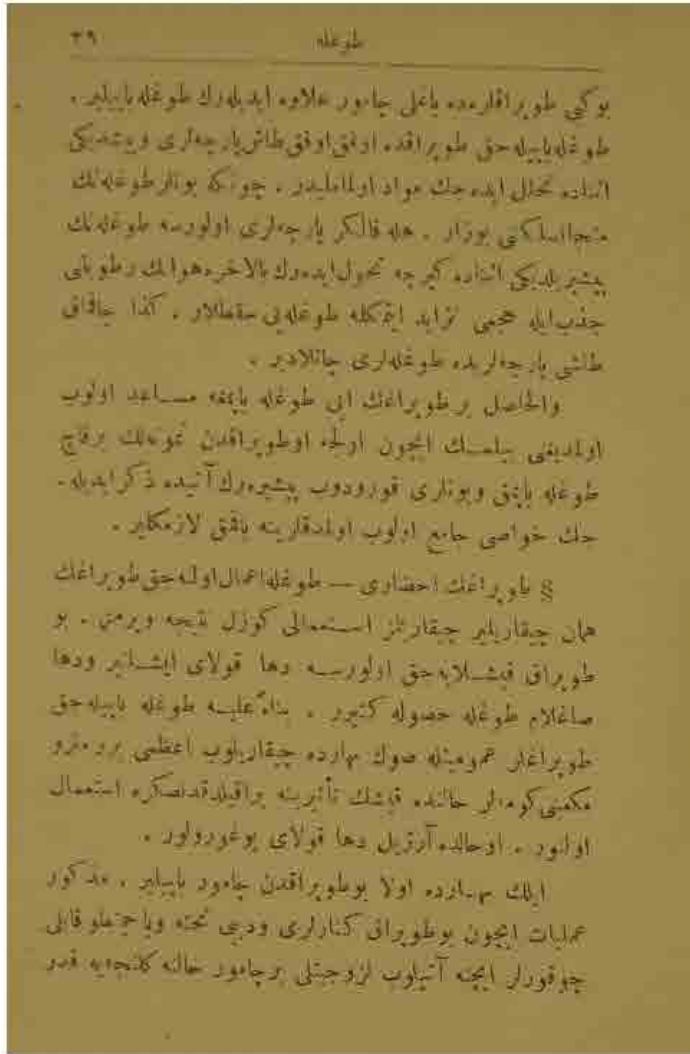 طوغله
٣٩
بوكبی طوپراقلره‌ده یاغلی چامور علاوه ایدیله‌رك طوغله یاپیلیر .
طوغله یاپیله‌جق طوپراقده اوفق اوفق طاش پارچه‌لری و پیشدیكی
اثناده تحلل ایده‌جك مواد اولماملیدر . چونكه بونلر طوغله‌نك
متجانسلكنی بوزار . هله قالكر پارچه‌لری اولورسه طوغله‌نك
پیشیریلدیكی اثناده كیرجه تحول ایده‌رك بالاخره هوانك رطوبتی
جذب ایله حجمی تزاید ایتمكله طوغله‌یی سقطلار . كذا چاقماق
طاشی پارچه‌لریده طوغله‌لری چاتلادیر .
والحاصل بر طوپراغك ایی طوغله یاپمغه مساعد اولوب
اولمدیغنی بیلمك ایچون اولجه اوطوپراقدن نمونه‌لك برقاچ
طوغله یاپمق وبونلری قورودوب پیشیره‌رك آتیده ذكر ایدیله‌ـ
جك خواصی جامع اولوب اولمدقلرینه باقمق لازمكلیر .
§ طوپراغك احضاری — طوغله اعمال اوله‌جق طوپراغك
همان چیقاریلیر چیقارلمز استعمالی كوزل نتیجه ویرمز . بو
طوپراق قیشلایه‌جق اولورسه دها قولای ایشلنیر ودها
صاغلام طوغله حصوله كتیرر . بناءً علیه طوغله یاپیله‌جق
طوپراغلر عمومیتله صوك بهارده چیقاریلوب اعظمی بر مترو
مكعبی كومه‌لر حالنده قیشك تأثیرینه براقیلدقدنصكره استعمال
اولنور . اوحالده آرتیق دها قولای یوغورولور .
ایلك بهارده اولا بوطوپراقدن چامور یاپیلیر . مذكور
عملیات ایچون بوطوپراق كنارلری ودیبی تخته ویا طوغله قاپلی
چوقورلر ایچنه آتیلوب لزوجتلی برچامور حالنه كلنجه‌یه قدر